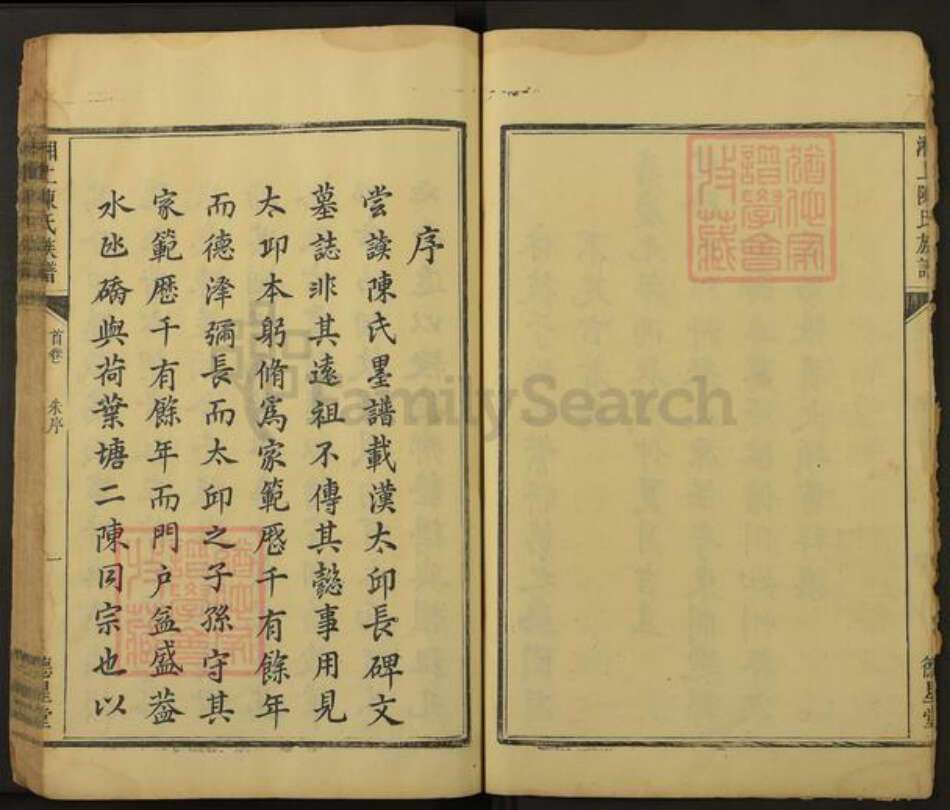 湘上陳氏族譜
德星堂
猶他家譜學會收藏
序
尝讀陳氏墨譜載漢太邱長碑文
墓誌非其遠祖不傳其懿事用見
太邱本躬脩爲家範歷千有餘年
而德澤彌長而太邱之子孫守其
家範歷千有餘年而門戶益盛葢
水氹礄與荷葉塘二陳同宗也以
湘上陳氏族譜
首卷
朱序
一
德星堂
猶他家譜學會收藏
FamilySearch